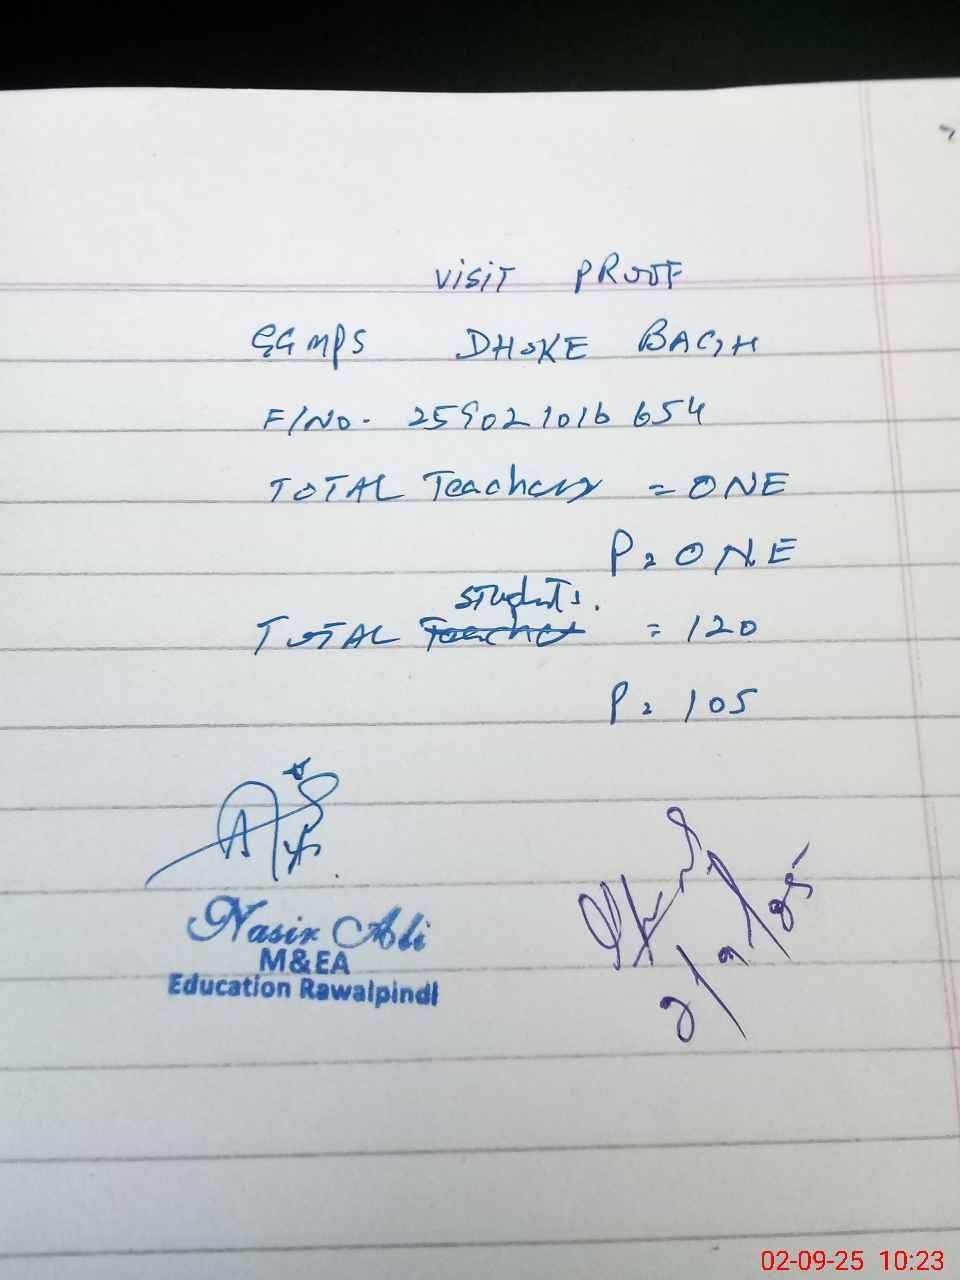 VISIT PROOF
GGMPS DHOKE BAGH
F/NO. 259021016654
TOTAL Teachers = ONE
P = ONE
students.
TOTAL Teacher = 120
P = 105
Nasir Ali
M&EA
Education Rawalpindi
2/9/25
02-09-25 10:23